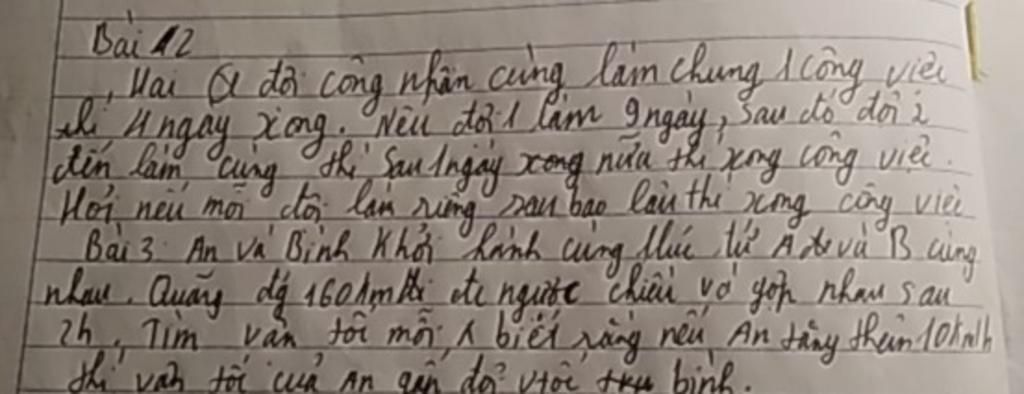 Bài 2
Hai đội công nhân cùng làm chung 1 công việc
thì 4 ngày xong. Nếu đội 1 làm 9 ngày, sau đó đội 2
đến làm cùng thì sau 1 ngày xong nữa thì xong công việc.
Hỏi nếu mỗi đội làm riêng sau bao lâu thì xong công việc
Bài 3 An và Bình khởi hành cùng lúc từ A và B cùng
nhau. Quãng dg 160km đi ngược chiều và gặp nhau sau
2h. Tìm vận tốc mỗi 1 biết rằng nếu An tăng thêm 10km/h
thì vận tốc của An gấp đôi vtốc bình.